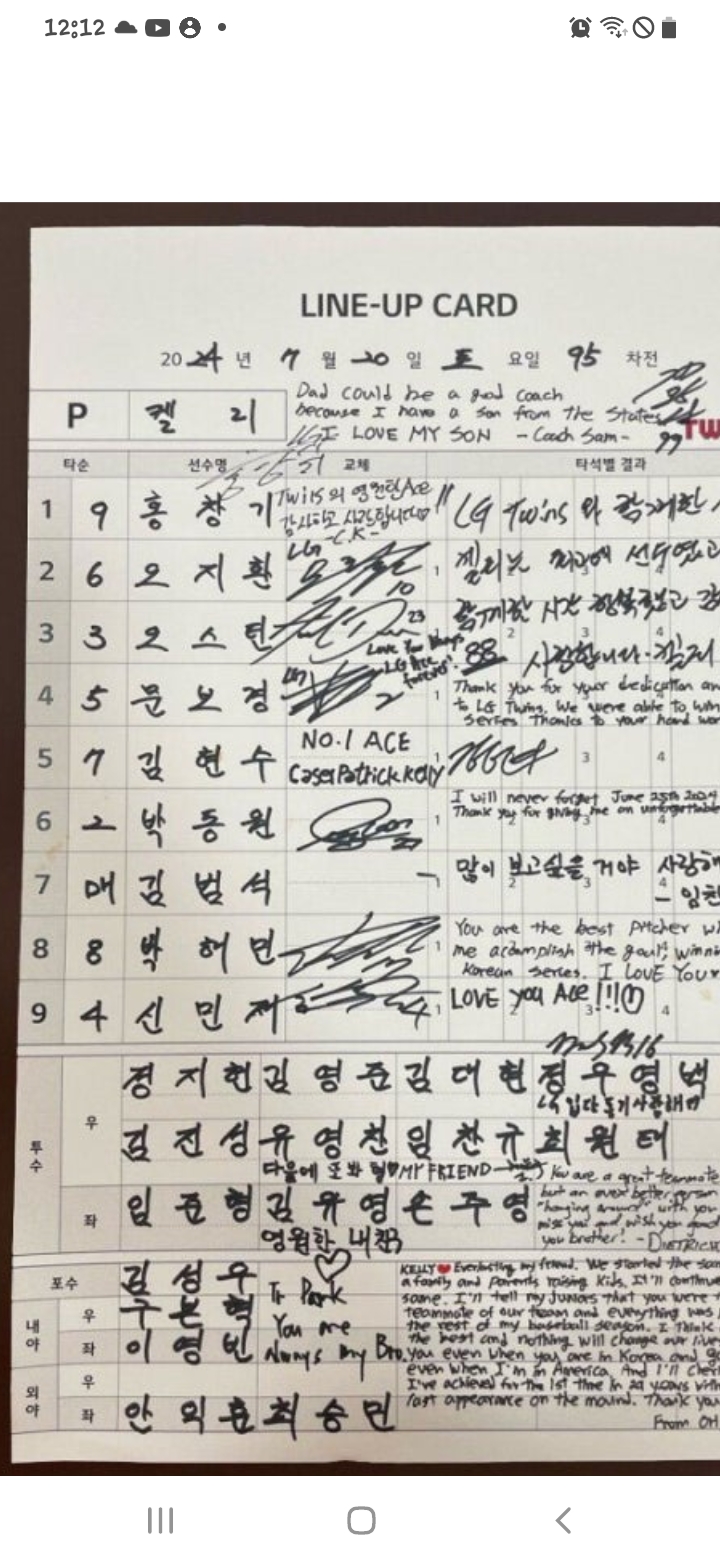 12:12
LINE-UP CARD
2024 년 7 월 20 일 토 요일 95 차전
P 켈 리
Dad could be a good coach
because I have a son from the States
I LOVE MY SON - Coach Sam-
99 TW
타순 선수명 교체 타석별 결과
1 9 홍 창 기
Twins의 영원한 Ace
감사하고 사랑합니다♡
-C.K-
LG Twins 와 함께한
2 6 오 지 환
LG
10
1 켈리는 최고에 선수였고
3 3 오 스 틴
23
Love You Always
LG Ace
forever!
함께한 시간 행복했고
88 사랑합니다. 켈리
4 5 문 보 경
2
1 Thank you for your dedication an
to LG Twins. We were able to win
series Thanks to your hard wor
5 7 김 현 수
NO.1 ACE
Casey Patrick Kelly
1 3 4
6 2 박 동 원
27
1 I will never forget June 25th 2024
Thank you for giving me an unforgettable
7 매 김 범 석
1 많이 보고싶을 거야 사랑해
- 임찬
8 8 박 해 민
1 You are the best pitcher wh
me accomplish the goal; winni
Korean series. I LOVE YOU♥
9 4 신 민 재
4
1 LOVE you Ace!!!
3 4
투수
우
정 지 헌 김 영 준 김 대 현 정 우 영 백
LG 입단 동기 사랑해
김 진 성 유 영 찬 임 찬 규 최 원 태
다음에 또 봐 형♥ MY FRIEND
좌
임 준 형 김 유 영 손 주 영
영원한 내친구
You are a great teammate
but an even better person
"hanging around" with you
miss you and wish you good
you brother! - DIETRICH
포수
김 성 우
내야
우
구 본 혁
좌
이 영 빈
외야
우
좌
안 익 훈 최 승 민
To Park
You are
Always my Bro.
KELLY♥ Everlasting my friend. We started the sam
a family and parents raising kids. It'll continue
same. I'll tell my juniors that you were t
teammate of our team and everything was
the rest of my baseball season. I think
the best and nothing will change our live
you even when you are in Korea and go
even when I'm in America. And I'll cher
I've achieved for the 1st time in 29 years with
last appearance on the mound. Thank you
From OH